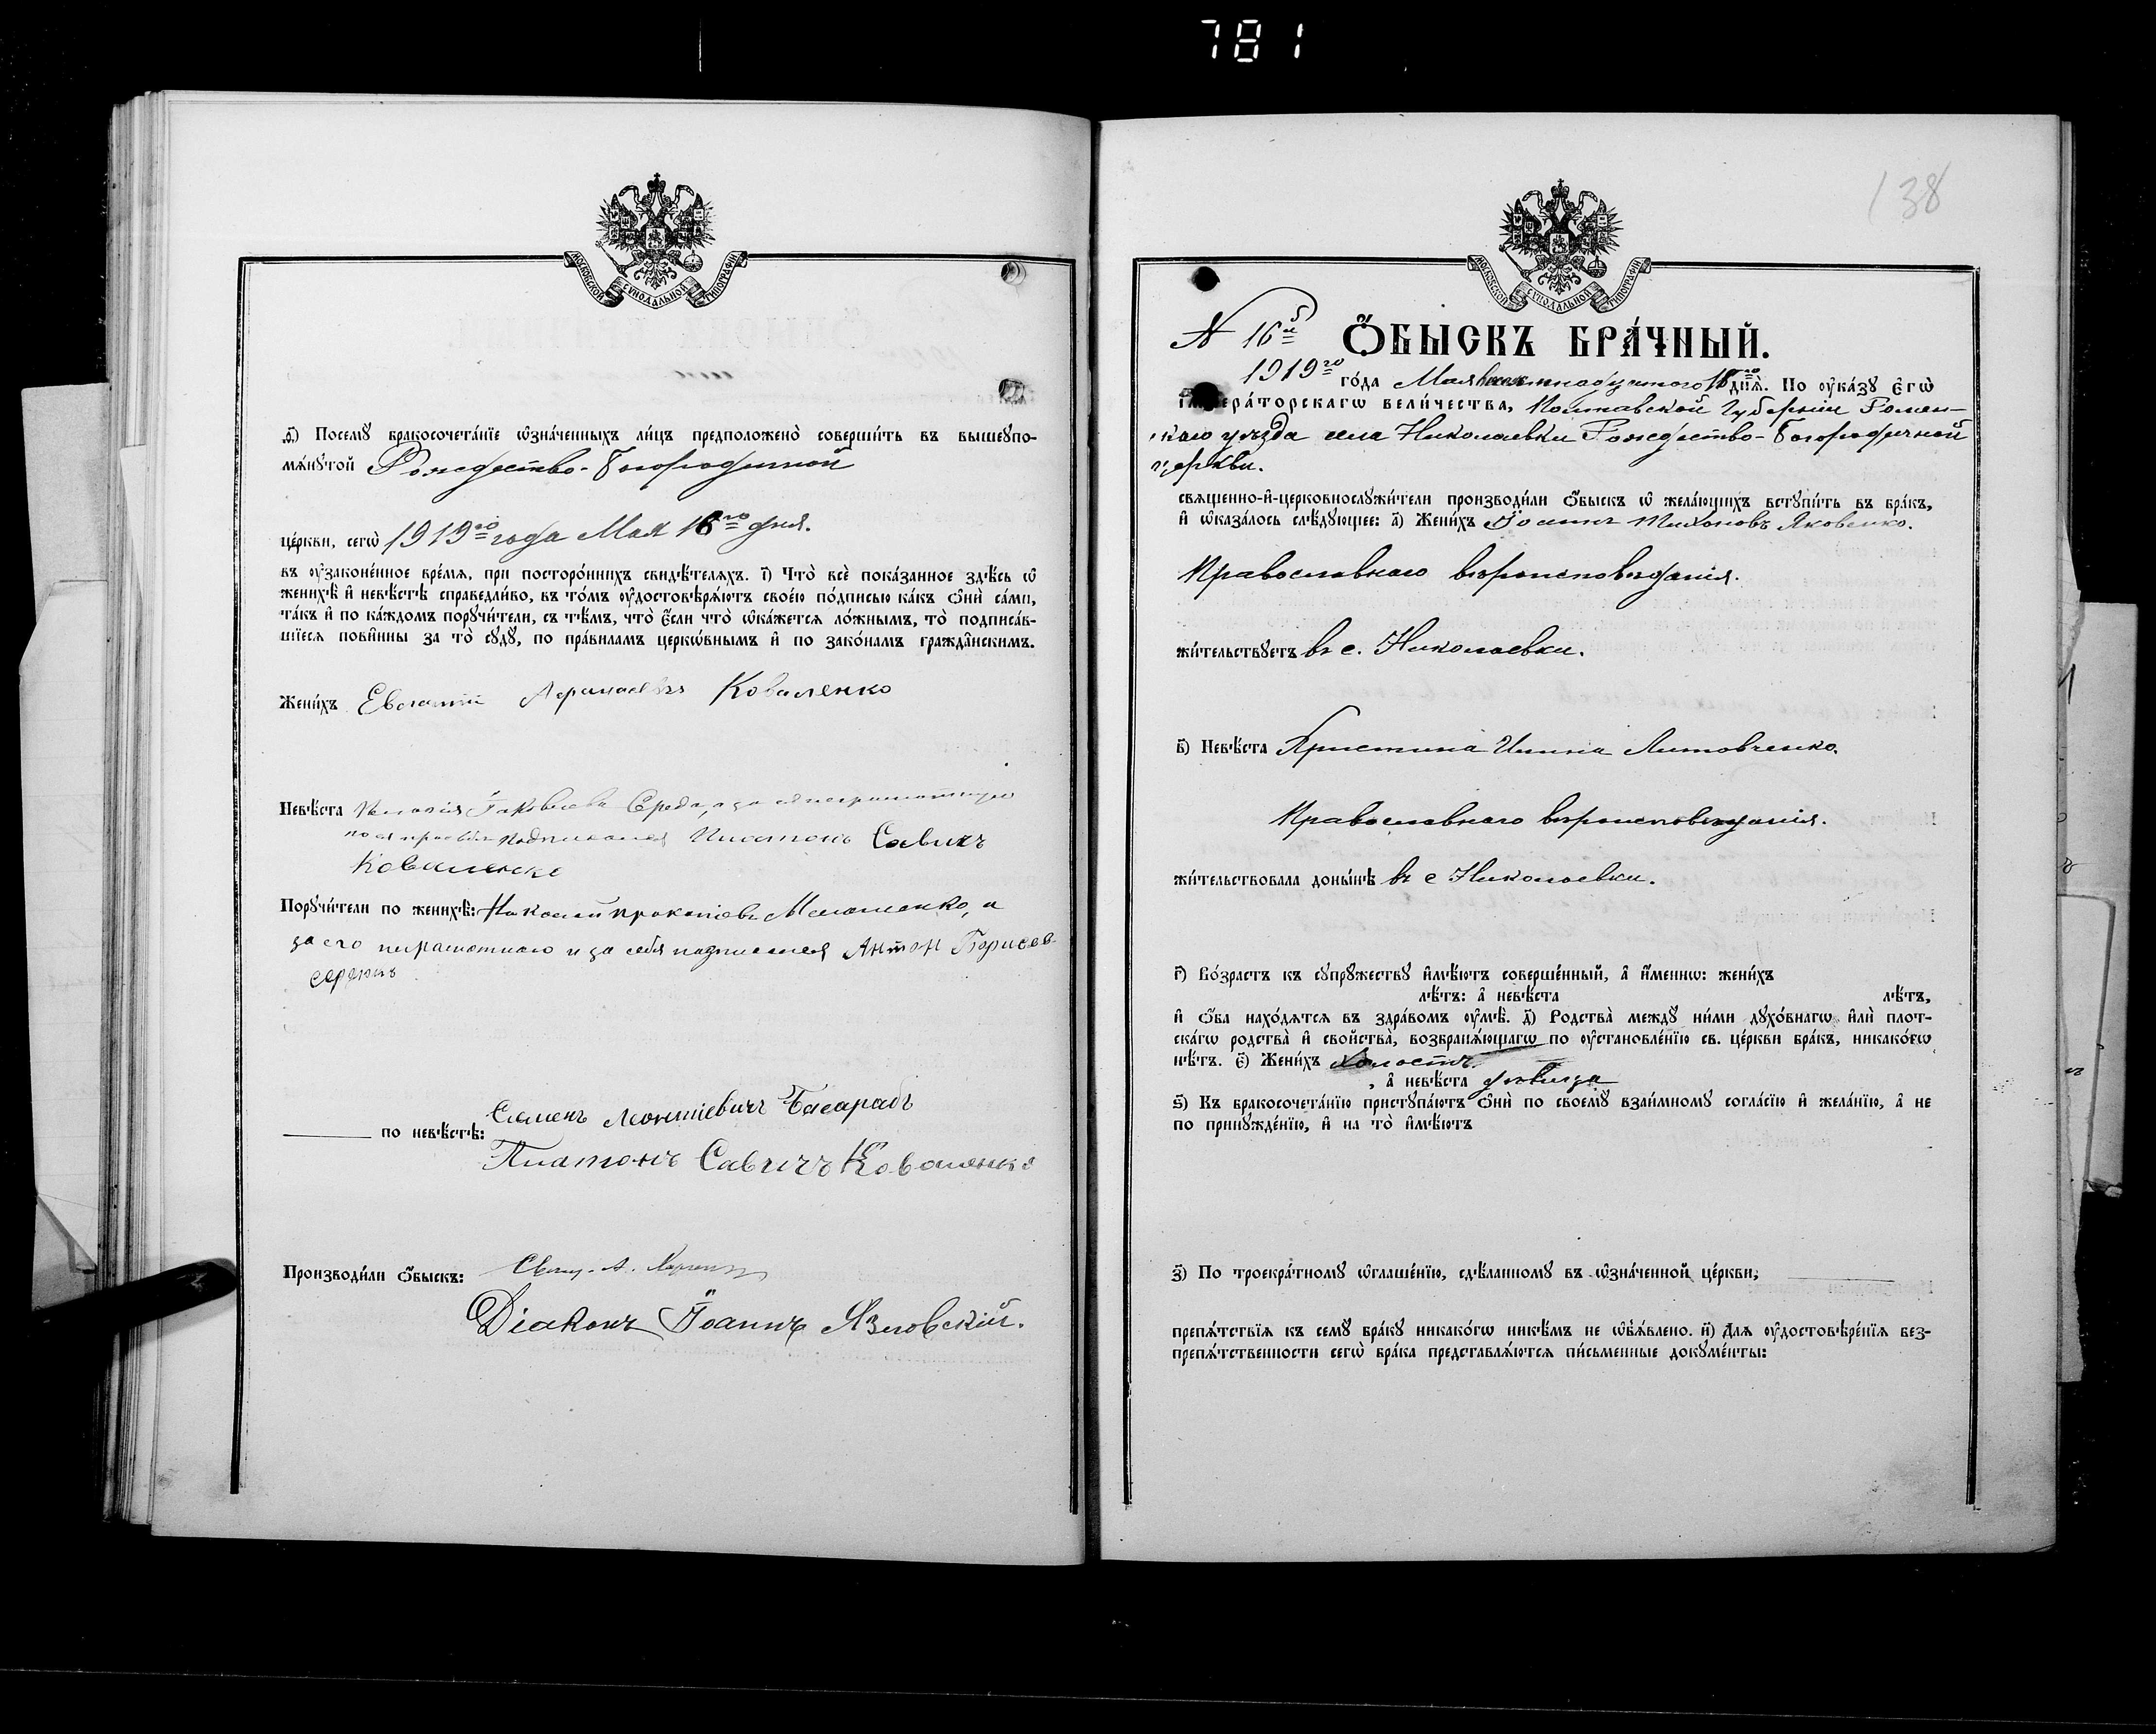 781
МОСКОВСКОЙ СѴНОДАЛЬНОЙ ТИПОГРАФІИ
ѳ҃) Посемꙋ бракосочета́нїе ѡ҆зна́ченныхъ ли́цъ предположено̀ соверши́ть въ вышеꙋпо-
мѧ́нꙋтой Рождество-Богородичной
це́ркви, сегѡ̀ 1919го года Мая 16го дня.
въ ᲂу҆зако́ненное вре́мѧ, при посторо́ннихъ свидѣ́телѧхъ. і҃) Что̀ всѐ пока́занное здѣ́сь ѡ҆
женихѣ̀ и҆ невѣ́стѣ справедли́во, въ то́мъ ᲂу҆достовѣрѧ́ютъ свое́ю по́дписью ка́къ ѻ҆нѝ са́ми,
та́къ и҆ по ка́ждомъ порꙋчи́тели, съ тѣ́мъ, что̀ є҆́сли что̀ ѡ҆ка́жетсѧ ло́жнымъ, то̀ подписа́в-
шїесѧ пови́нны за то̀ сꙋдꙋ̀, по пра́виламъ церкѡ́внымъ и҆ по зако́намъ гражда́нскимъ.
Жени́хъ Коваленко
Невѣ́ста Яковлева Середа, а за ея неграмотную
по ея просьбѣ Платонъ Савичъ
Коваленко
Порꙋчи́тели по женихѣ̀: Николай Прокопіевъ, а
за его неграмотнаго и за себя подписался Антон Борисов
по невѣ́стѣ: Семенъ Леонтіевичъ Басарабъ
Платонъ Савичъ Коваленко
Производи́ли ѻ҆́быскъ: Свящ. А.
Діаконъ Іоаннъ Язловскій.
138
МОСКОВСКОЙ СѴНОДАЛЬНОЙ ТИПОГРАФІИ
N 16й Ѻ҆́БЫСКЪ БРА́ЧНЫЙ.
1919го го́да Мая днѧ̀. По ᲂу҆ка́зꙋ є҆гѡ̀
и҆мпера́торскагѡ вели́чества, Полтавской Губерніи Ромен-
скаго уѣзда села Николаевки Рождество-Богородичной
церкви.
свѧщенно-и҆-церковнослꙋжи́тели производи́ли ѻ҆́быскъ ѡ҆ жела́ющихъ встꙋпи́ть въ бра́къ,
и҆ ѡ҆каза́лось слѣ́дꙋющее: а҃) Жени́хъ Іоаннъ Тихоновъ Яковенко.
Православнаго вѣроисповѣданія.
жи́тельствꙋетъ въ с. Николаевки.
в҃) Невѣ́ста Христина Литовченко.
Православнаго вѣроисповѣданія.
жи́тельствовала доны́нѣ въ с Николаевки.
г҃) Во́зрастъ къ сꙋпрꙋ́жествꙋ и҆мѣ́ютъ соверше́нный, а҆ и҆́меннѡ: жени́хъ
лѣ́тъ: а҆ невѣ́ста лѣ́тъ,
и҆ ѻ҆́ба нахо́дѧтсѧ въ здра́вомъ ᲂу҆мѣ̀. д҃) Родства̀ междꙋ ни́ми дꙋхо́внагѡ и҆лѝ плот-
ска́гѡ родства̀ и҆ свойства̀, возбранѧ́ющагѡ по ᲂу҆становле́нїю св. це́ркви бра́къ, никако́гѡ
нѣ́тъ. є҃) Жени́хъ холостъ.
, а҆ невѣ́ста дѣвица
ѕ҃) Къ бракосочета́нїю пристꙋпа́ютъ ѻ҆нѝ по своемꙋ̀ взаи́мномꙋ согла́сїю и҆ жела́нїю, а҆ не
по принꙋжде́нїю, и҆ на то̀ и҆мѣ́ютъ
з҃) По троекра́тномꙋ ѡ҆глаше́нїю, сдѣ́ланномꙋ въ ѡ҆зна́ченной це́ркви,
препѧ́тствїѧ къ семꙋ̀ бра́кꙋ никако́гѡ никѣ́мъ не ѡ҆б̾ѧ́влено. и҃) Длѧ ᲂу҆достовѣре́нїѧ без-
препѧ́тственности сегѡ̀ бра́ка представлѧ́ютсѧ пи́сьменные докꙋме́нты: